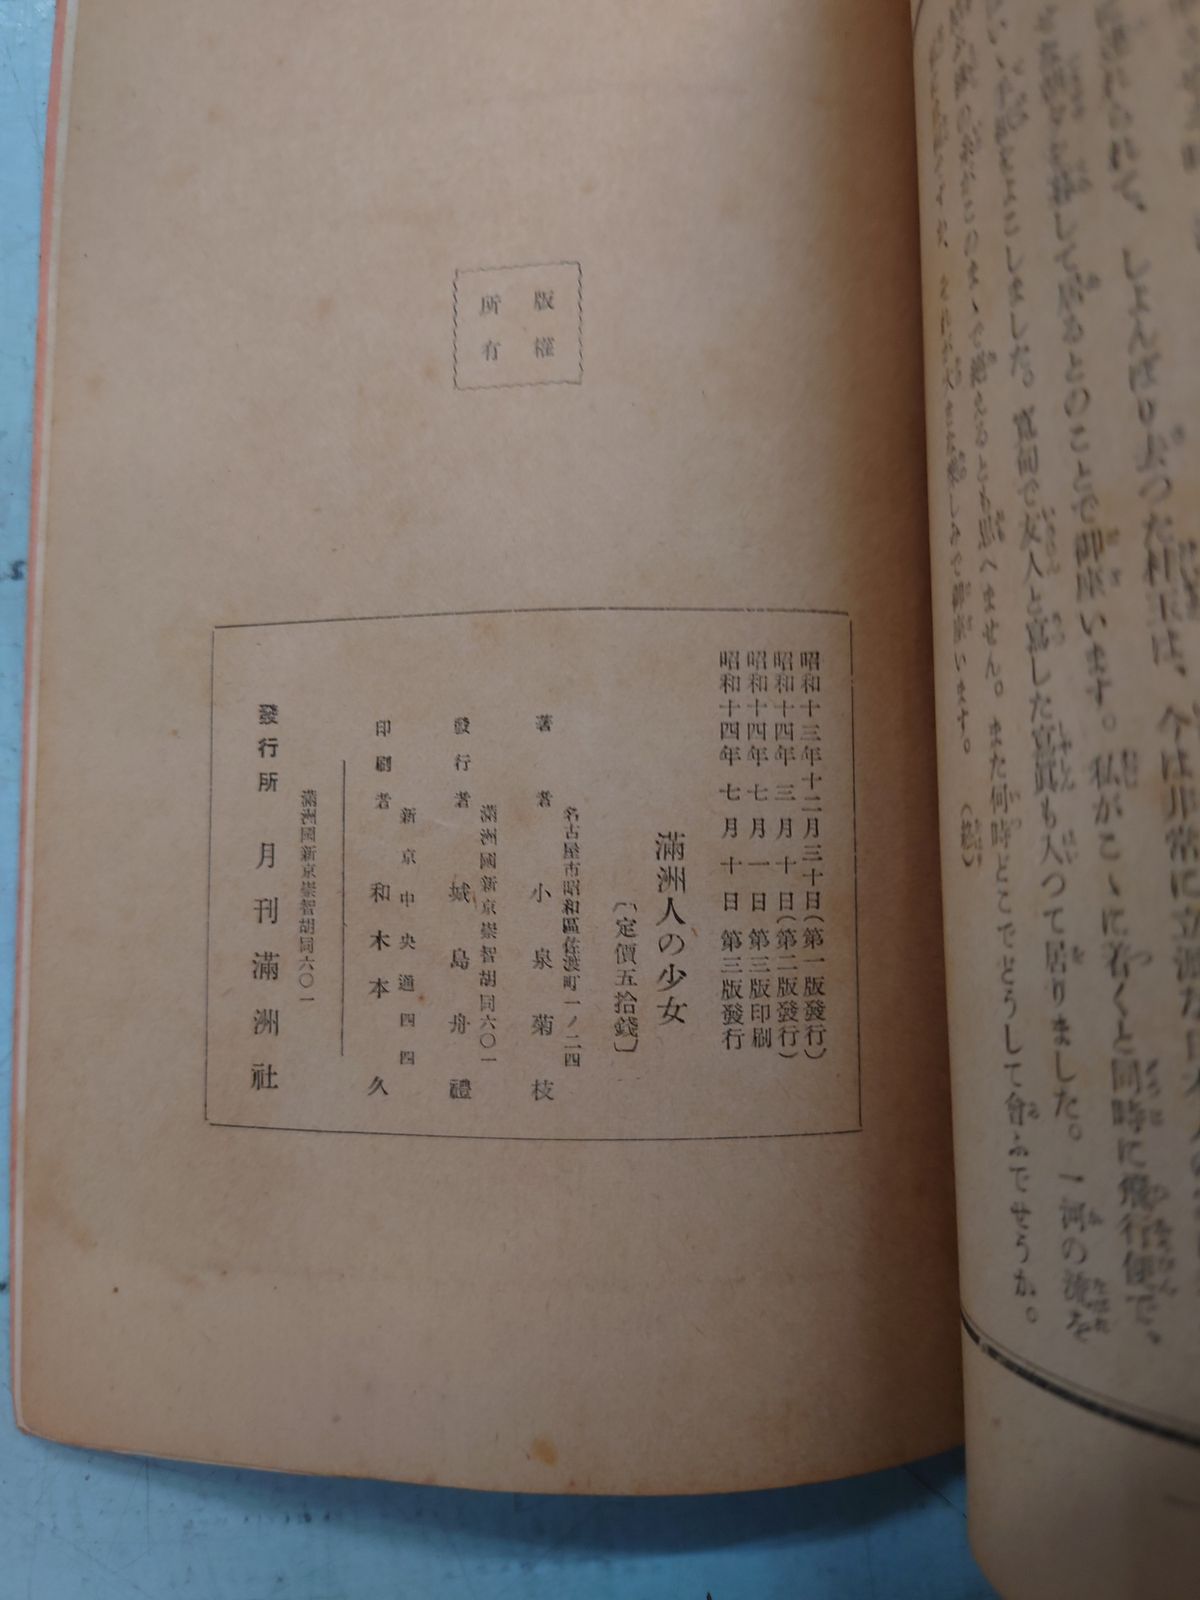 しよんぼり去つた桂玉は、今は非常に立派な日本人の
して居るとのことで御座います。私がこゝに着くと同時に飛行便で、
をよこしました。寫眞で友人と寫した寫眞も入つて居りました。一河の流を
このまゝで絶えるとも思へません。また何時どこでどうして會ふでせうか。
御座います。
(終)
版權
所有
昭和十三年十二月三十日(第一版發行)
昭和十四年三月十日(第二版發行)
昭和十四年七月一日第三版印刷
昭和十四年七月十日第三版發行
滿洲人の少女
〔定價五拾錢〕
名古屋市昭和區佐渡町一ノ二四
著者 小泉菊枝
滿洲國新京崇智胡同六〇一
發行者 城島舟禮
新京中央通四四
印刷者 和木本久
滿洲國新京崇智胡同六〇一
發行所 月刊滿洲社